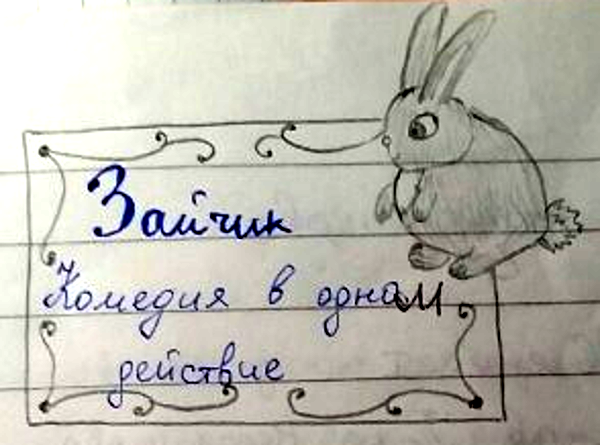 Зайчик
Комедия в одном
действие